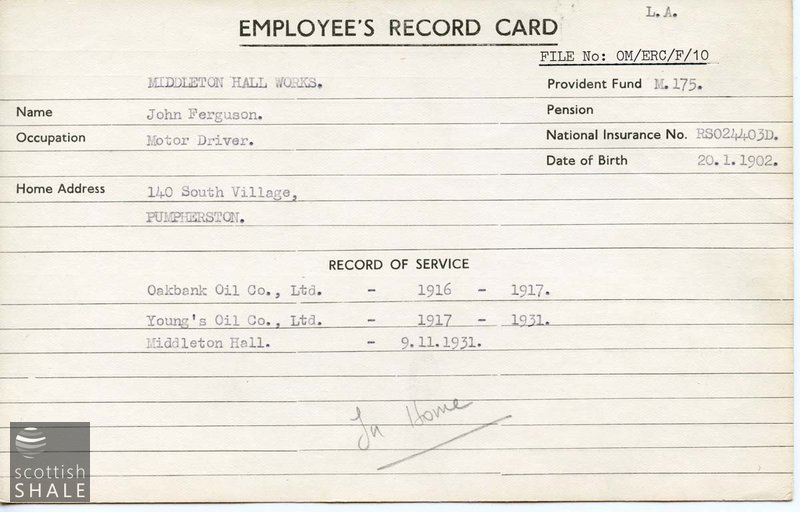 L.A.
EMPLOYEE'S RECORD CARD
FILE No: OM/ERC/F/10
MIDDLETON HALL WORKS.
Provident Fund M.175.
Name John Ferguson.
Pension
Occupation Motor Driver.
National Insurance No. RS024403D.
Date of Birth 20.1.1902.
Home Address 140 South Village,
PUMPHERSTON.
RECORD OF SERVICE
Oakbank Oil Co., Ltd. - 1916 - 1917.
Young's Oil Co., Ltd. - 1917 - 1931.
Middleton Hall. - 9.11.1931.
In Home
scottish
SHALE